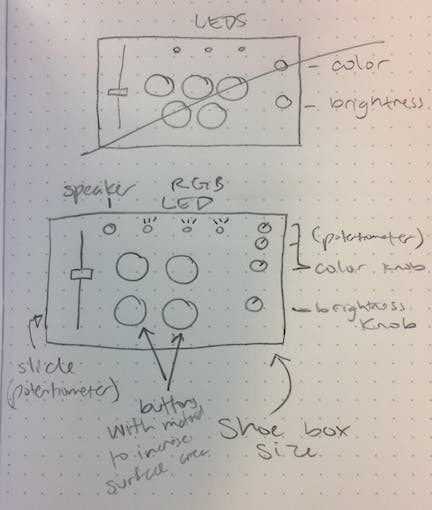 LEDS
color
brightness
speaker
RGB
LED
(potentiometer)
color knob
brightness
knob
slide
(potentiometer)
buttons
with metal
to increase
surface area
Shoe box
size